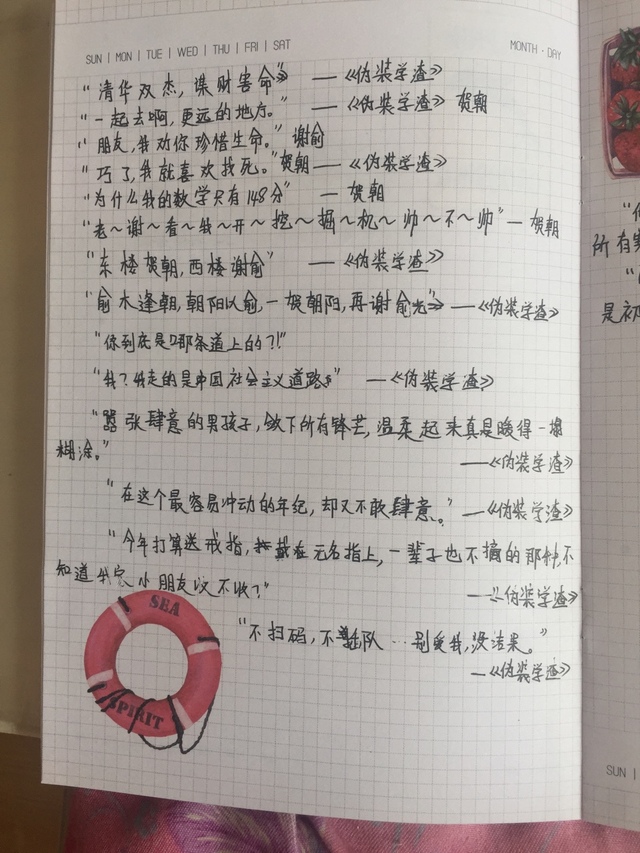 SUN | MON | TUE | WED | THU | FRI | SAT
MONTH · DAY
"清华双杰,谋财害命" —《伪装学渣》
"一起去啊,更远的地方。" —《伪装学渣》贺朝
"朋友,我劝你珍惜生命。"谢俞
"巧了,我就喜欢找死。"贺朝—《伪装学渣》
"为什么我的数学只有148分" — 贺朝
"老~谢~看~我~开~挖~掘~机~帅~不~帅"—贺朝
"东楼贺朝,西楼谢俞" —《伪装学渣》
"俞木逢朝,朝阳以俞,一贺朝阳,再谢俞光"—《伪装学渣》
"你到底是哪条道上的?!"
"我?我走的是中国社会主义道路" —《伪装学渣》
"嚣张肆意的男孩子,敛下所有锋芒,温柔起来真是腴得一塌
糊涂。"
—《伪装学渣》
"在这个最容易冲动的年纪,却又不敢肆意。"—《伪装学渣》
"今年打算送戒指,戴在无名指上,一辈子也不摘的那种,不
知道我家小朋友收不收?"
—《伪装学渣》
SEA
SPIRIT
"不扫码,不组队…别爱我,没结果。"
—《伪装学渣》
所有
是初
SUN |